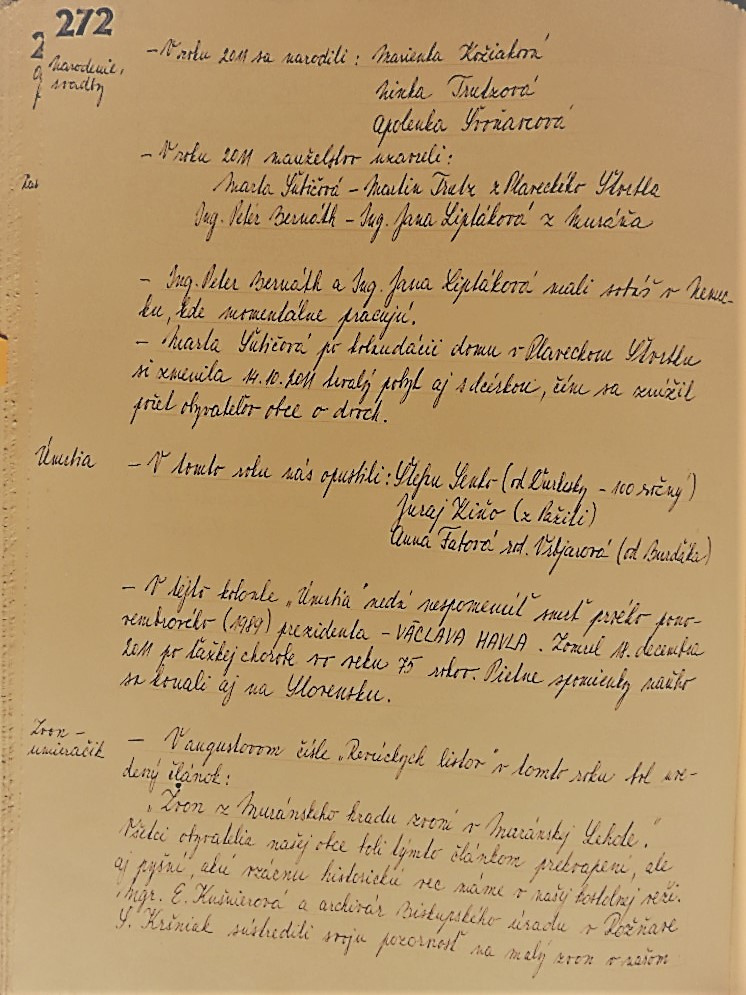 272
Narodenie,
svadby
- V roku 2011 sa narodili: Marienka Kožiaková
Ninka Trutzová
Apolenka Švoňavcová
- V roku 2011 manželstvo uzavreli:
Marta Šutičová - Martin Trutz z Plaveckého Štvrtka
Ing. Peter Bernáth - Ing. Jana Liptáková z Muráňa
- Ing. Peter Bernáth a Ing. Jana Liptáková mali sobáš v Nemec-
ku, kde momentálne pracujú.
- Marta Šutičová po kolaudácii domu v Plaveckom Štvrtku
si zmenila 14.10.2011 trvalý pobyt aj s dcérkou, čím sa znížil
počet obyvateľov obce o dvoch.
Úmrtia
- V tomto roku nás opustili: Štefan Senko (od Ďurišky - 100 ročný)
Juraj Kiňo (z Pažiti)
Anna Fabová rod. Vrbjarová (od Burdáka)
- V tejto kolonke „Úmrtia" nedá nespomenúť smrť prvého pono-
vembrového (1989) prezidenta - VÁCLAVA HAVLA. Zomrel 18. decembra
2011 po ťažkej chorobe vo veku 75 rokov. Pietne spomienky naňho
sa konali aj na Slovensku.
Zvon -
umieračik
- V augustovom čísle „Revúckych listov" v tomto roku bol uve-
dený článok:
„Zvon z Muránskeho hradu zvoní v Muránskej Lehote."
Všetci obyvatelia našej obce boli týmto článkom prekvapení, ale
aj pyšní, akú vzácnu historickú vec máme v našej kostolnej veži.
Mgr. E. Kušnierová a archivár Biskupského úradu v Rožňave
S. Kršniak sústredili svoju pozornosť na malý zvon v našom